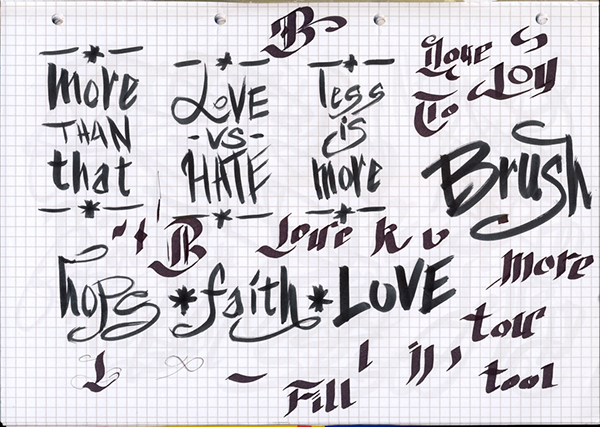 B
more
THAN
that
LOVE
-VS-
HATE
less
is
more
Love
Joy
To
Brush
B
Love k v
more
hops *faith*LOVE
tour
tool
L
Fill
l